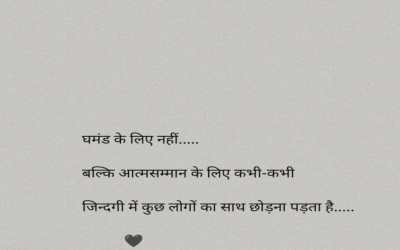 घमंड के लिए नहीं.....
बल्कि आत्मसम्मान के लिए कभी-कभी
जिन्दगी में कुछ लोगों का साथ छोड़ना पड़ता है.....
🖤